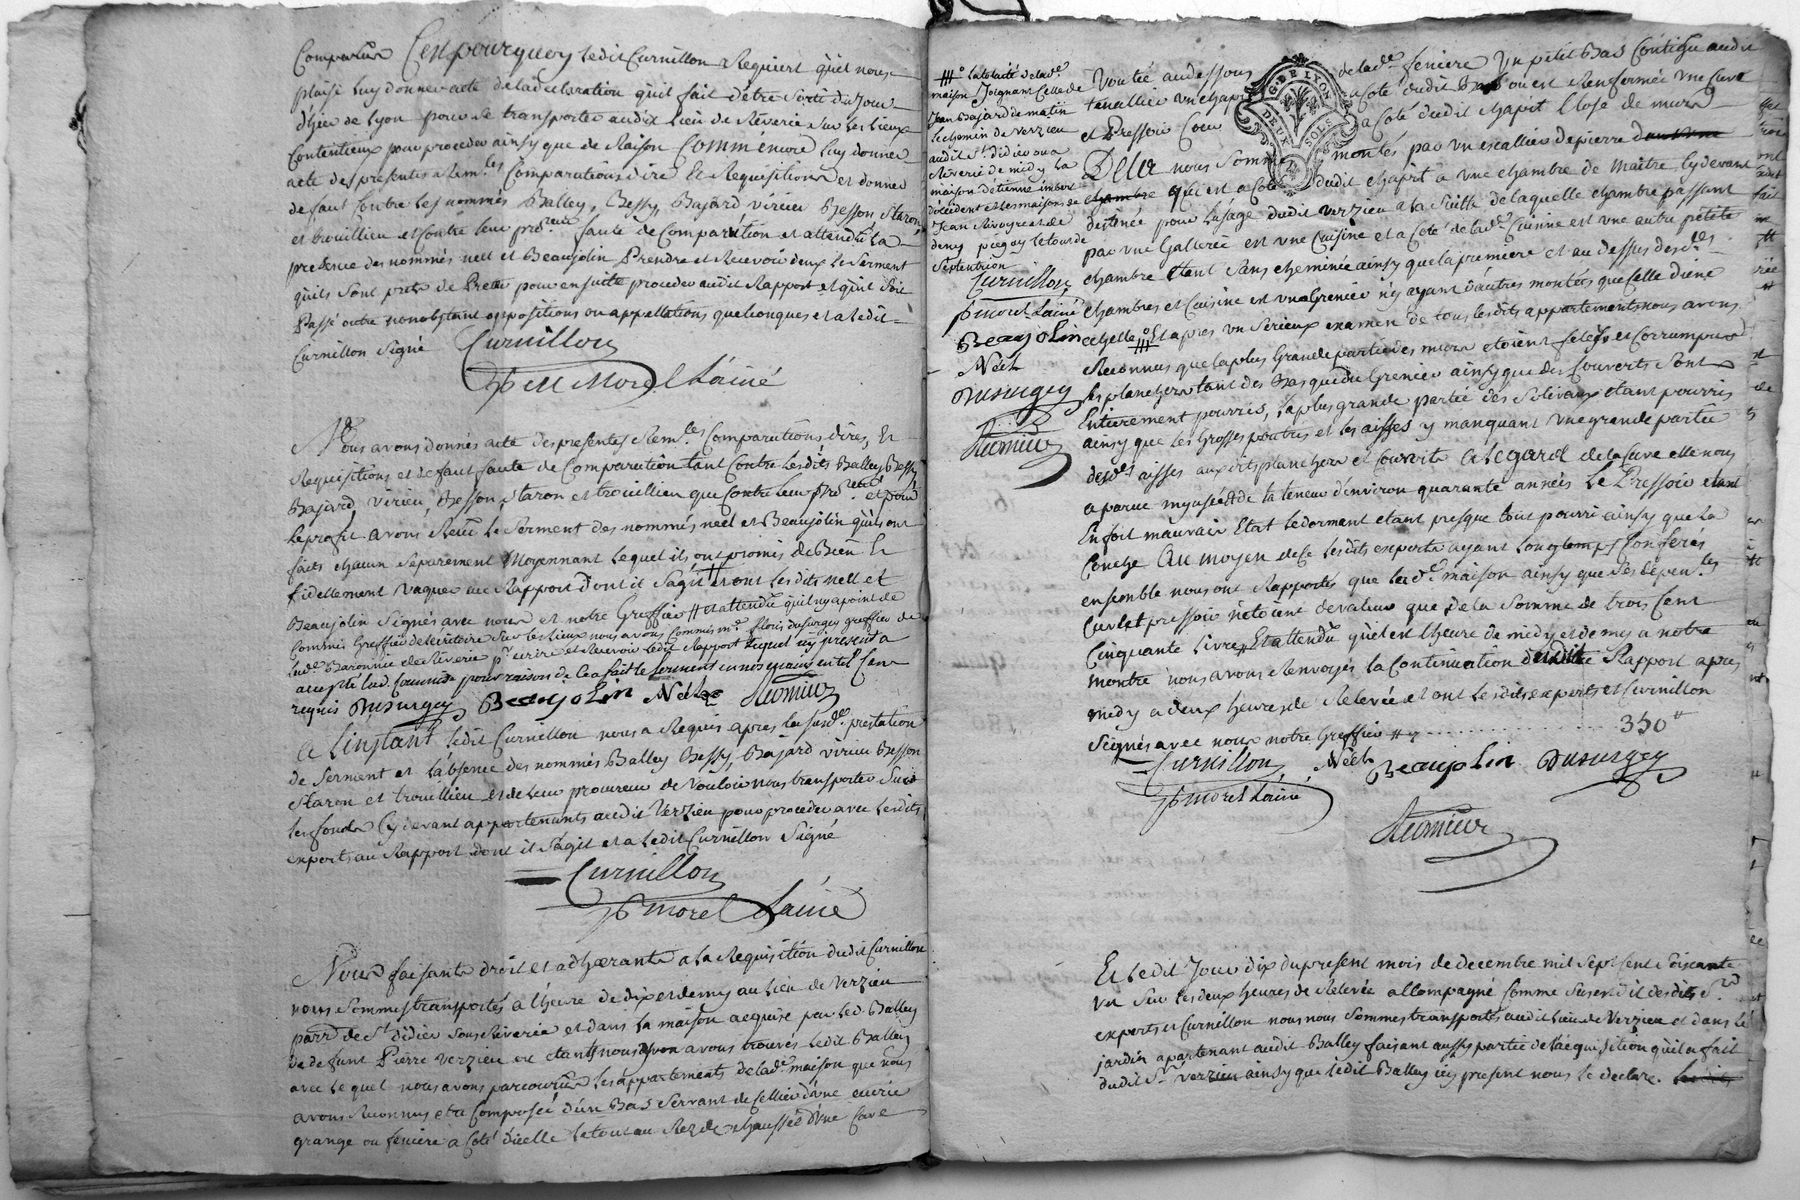 Comparution C'est pourquoy ledit Curnillon Requiert qu'il nous
plaise luy donner acte de la declaration qu'il fait d'être sorti du jour
d'hier de Lyon pour se transporter audit Lieu de Riverie sur les lieux
Contentieux pour proceder ainsy que de Raison Comm'encore luy donner
acte des presentes Rem.les Comparutions dire Et Requisitions et donner
defaut Contre les nommés Balley, Bessy, Bajard virieu Besson Staron
et trouillieu et Contre leur pro.reur faute de Comparution et attendu la
presence des nommés neel et Beaujolin Prendre et Recevoir deux le Serment
qu'ils sont prets de Preter pour ensuitte proceder audit Rapport et qu'il soit
Passé outre nonobstant oppositions ou appellations quelconques et a ledit
Curnillon Signé Curnillon
Morel Lainé
Nous avons donnés acte des presentes Rem.les Comparutions, dires, Et
Requisitions et defaut faute de Comparution tant Contre lesdits Balley Bessy,
Bajard, virieu, Besson, Staron et trouillieu que Contre leur Pro.reur et pour
le profit avons Reçu le Serment des nommés neel et Beaujolin qu'ils ont
faits chacun separement Moyennant lequel ils ont promis de Bien Et
fidellement vaquer au Rapport dont il s'agit # et ont lesdits nell et
Beaujolin Signés avec nous et notre Greffier # et attendu qu'il ny a point de
Commis Greffier de lecritoire sur les lieux nous avons Commis m.e fleris dusurgey greffier de
lad.e Baronnie de Riverie p.r ecrire et Recevoir ledit Rapport lequel icy present a
accepté lad. Commise pour raison de ce a fait le serment en nos mains en tel cas
requis Dusurgey Beaujolin Néel Reumieux
A L'instant ledit Curnillon nous a Requis apres la susd.e prestation
de Serment et l'absence des nommés Balley Bessy, Bajard virieu Besson
Staron et trouillieu et de leur procureur de Vouloir nous transporter Sur
les fonds Cy devant appartenants audit Verzieu pour proceder avec lesdits
experts au Rapport dont il s'agit et a ledit Curnillon Signé
Curnillon
Morel Lainé
Nous faisants droit et adhærants a la Requisition dudit Curnillon
nous sommes transportés a l'heure de dix et demy au lieu de Verzieu
parr.e de S.t didier sous Riverie et dans la maison acquise par led. Balley
de defunt Pierre Verzieu et etants nous avons trouvés ledit Balley
avec lequel nous avons parcourus les appartements de lad.e maison que nous
avons Reconnus etre Composée d'un Bas servant de Cellier d'une ecurie
grange ou feniere a Coté d'icelle le tout au Rez de chaussée d'une Cave
# la totalité de lad.e
maison Joignant Celle de
Jean Bajard de matin
le chemin de verzieu
audit S.t didier ou a
Riverie de midy la
maison d'etienne imbert
d'occident et les maisons de
Jean Rivoyre et de
denis pegay le tout de
Septentrion
Curnillon
Morel Lainé
Beaujolin
Néel
Dusurgey
Reumieux
Voutée au dessous de lad.e feniere Un petit Bas Contigu audit
tenallier un chapit a Coté dudit Bas ou est Renfermée une Cuve
et Pressoir Cour a Coté dudit chapit Close de murs
G. DE LYON
DEUX SOLS
De la nous Sommes montés par un escallier de pierre
chambre qui est a Coté dudit chapit a une chambre de Maître Cy devant
destinée pour l'usage dudit Verzieu a la Suitte de laquelle chambre passant
par une Gallerie est une Cuisine et a Coté de lad.e Cuisine est une autre petite
chambre Etant Sans cheminée ainsy que la premiere et au dessus desd.es
chambres et Cuisine est un Grenier n'y ayant d'autres montés que Celle d'une
echelle # Et apres un Serieux examen de tous lesdits appartements nous avons
Reconnus que la plus Grande partie des murs etoient felés et Corrumpus
les planchers tant des Bas que du Grenier ainsy que des Couverts Sont
Entierement pourris, la plus grande partie des Soliveaux etant pourris
ainsy que les Grosses poutres et les aisses y manquant une grande partie
desd.es aisses aux dits planchers et Couverts a L'egard de la Cuve elle nous
a parue my usée et de la teneur d'environ quarante années Le Pressoir etant
En fort mauvais Etat le dormant etant presque tout pourri ainsy que la
Conche Au moyen de Ce lesdits experts ayant Longtemps Conferés
ensemble nous ont Rapportés que lad.e maison ainsy que ses dépen.les
Cuve et pressoir n'etoient de valeur que de la Somme de trois Cent
Cinquante livres Et attendu qu'il est l'heure de midy et demy a notre
montre nous avons Renvoyés la Continuation dudit Rapport apres
midy a deux heures de Relevée et ont lesdits experts et Curnillon
Signés avec nous notre Greffier 350#
Curnillon Néel Beaujolin Dusurgey
Morel Lainé
Reumieux
Et ledit Jour dix du present mois de decembre mil Sept Cent Soixante
un Sur les deux heures de Relevée accompagné Comme Susend'il desdits S.rs
experts et Curnillon nous nous Sommes transportés audit lieu de Verzieu et dans le
jardin apartenant audit Balley faisant aussy partie de l'acquisition qu'il a fait
dudit S.r Verzieu ainsy que ledit Balley icy present nous le declare. lesdits